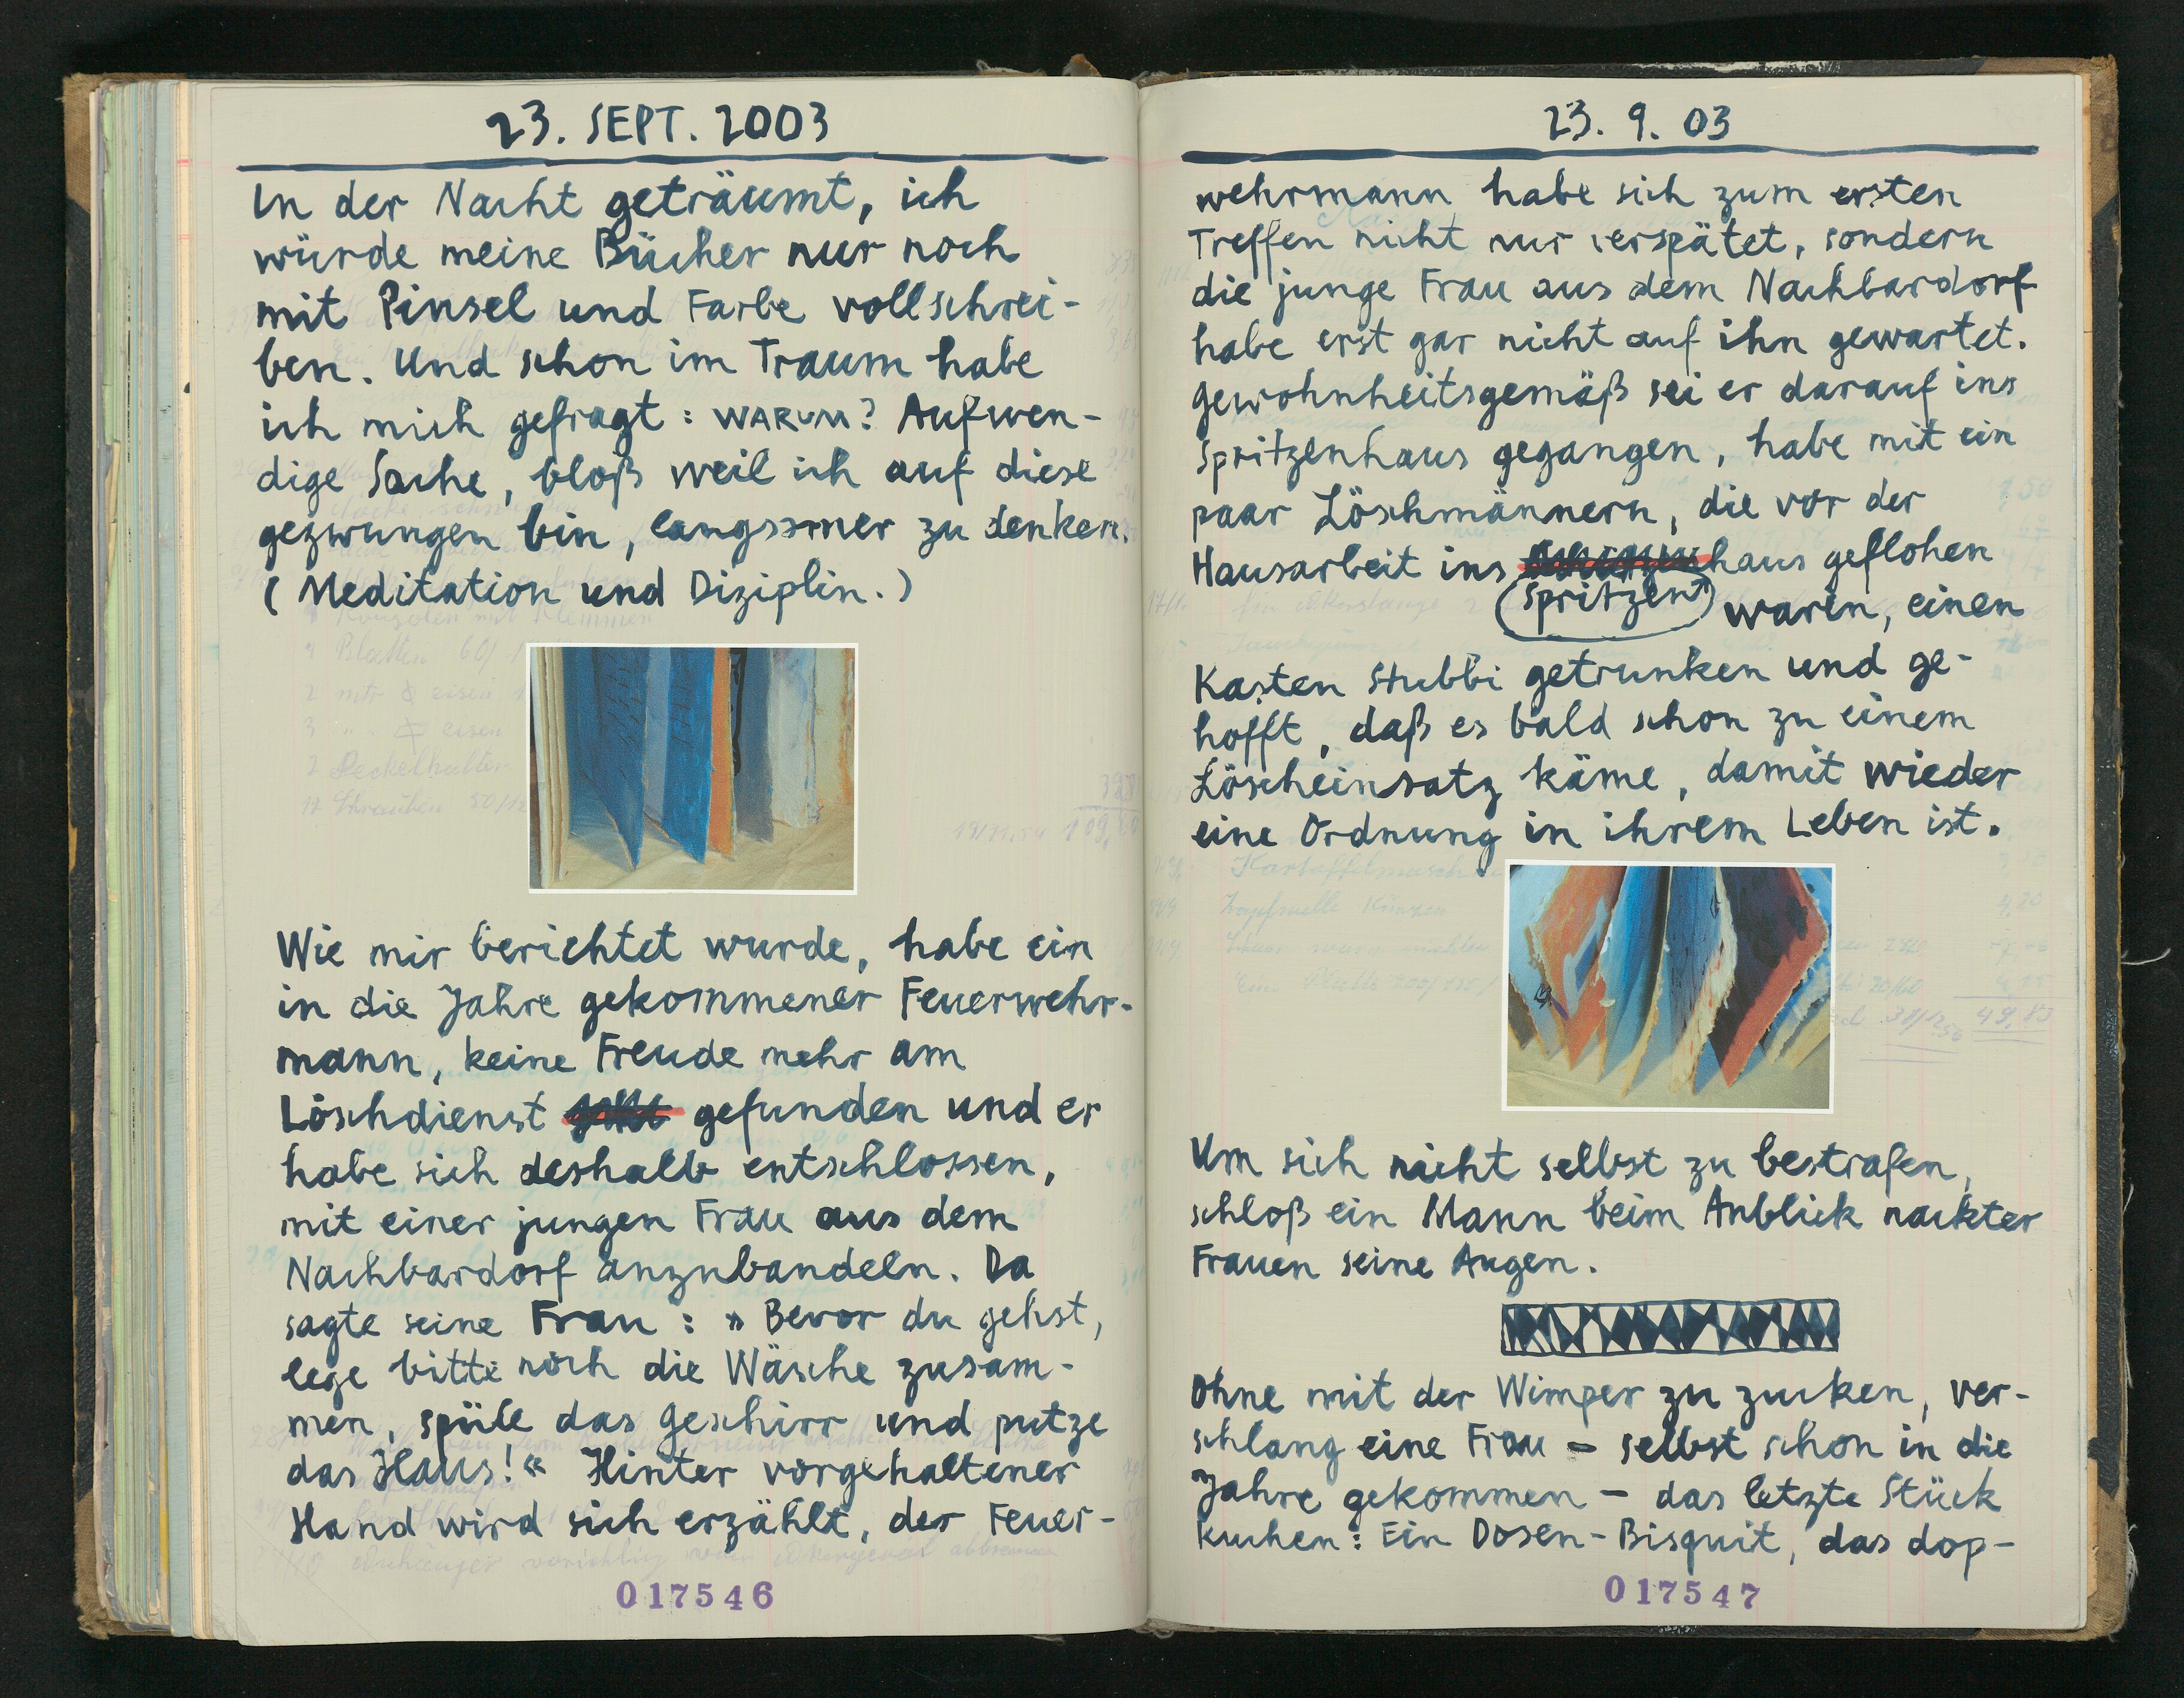 23. SEPT. 2003
In der Nacht geträumt, ich
würde meine Bücher nur noch
mit Pinsel und Farbe vollschrei-
ben. Und schon im Traum habe
ich mich gefragt: WARUM? Aufwen-
dige Sache, bloß weil ich auf diese
gezwungen bin, langsamer zu denken.
(Meditation und Diziplin.)
Wie mir berichtet wurde, habe ein
in die Jahre gekommener Feuerwehr-
mann, keine Freude mehr am
Löschdienst gefunden und er
habe sich deshalb entschlossen,
mit einer jungen Frau aus dem
Nachbardorf anzubandeln. Da
sagte seine Frau: »Bevor du gehst,
lege bitte noch die Wäsche zusam-
men, spüle das Geschirr und putze
das Haus!« Hinter vorgehaltener
Hand wird sich erzählt, der Feuer-
017546
23. 9. 03
wehrmann habe sich zum ersten
Treffen nicht nur verspätet, sondern
die junge Frau aus dem Nachbardorf
habe erst gar nicht auf ihn gewartet.
Gewohnheitsgemäß sei er darauf ins
Spritzenhaus gegangen, habe mit ein
paar Löschmännern, die vor der
Hausarbeit ins haus geflohen
(Spritzen) waren, einen
Kasten Stubbi getrunken und ge-
hofft, daß es bald schon zu einem
Löscheinsatz käme, damit wieder
eine Ordnung in ihrem Leben ist.
Um sich nicht selbst zu bestrafen,
schloß ein Mann beim Anblick nackter
Frauen seine Augen.
Ohne mit der Wimper zu zucken, ver-
schlang eine Frau – selbst schon in die
Jahre gekommen – das letzte Stück
Kuchen: Ein Dosen-Bisquit, das dop-
017547